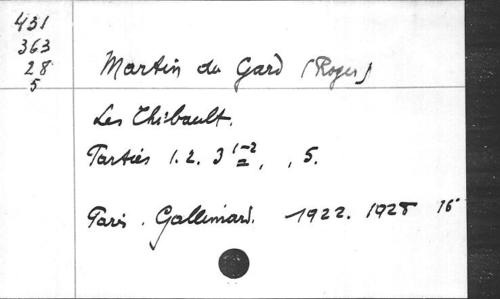 431
363
28
5
Martin du Gard (Roger)
Les Thibault.
Parties 1. 2. 3 1-2, , 5.
Paris. Gallimard. 1922. 1928 16°